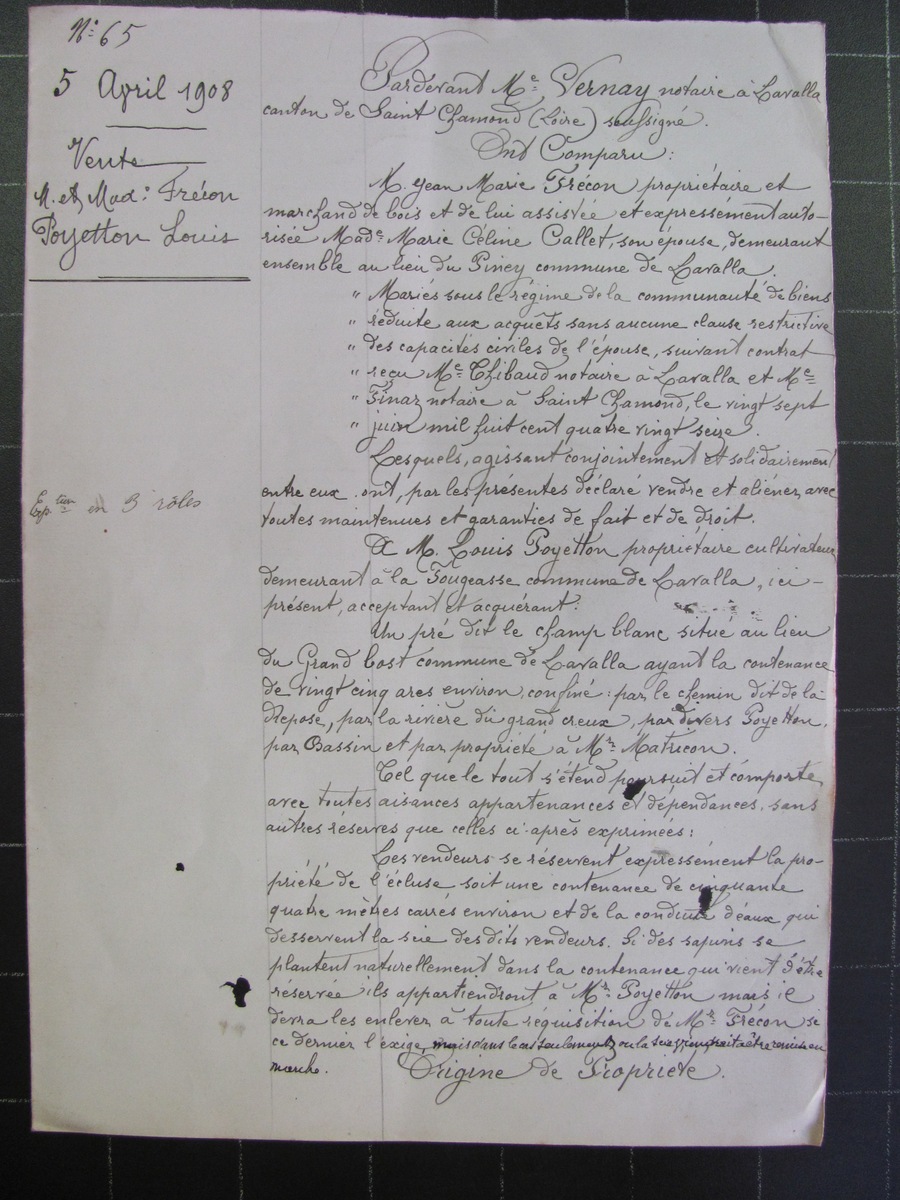 N° 65
5 April 1908
Vente
M. et Mad° Frécon
Poyetton Louis
Exp.tion en 3 rôles
Pardevant Me Vernay notaire à Lavalla
canton de Saint Chamond (Loire) soussigné.
Ont Comparu :
M. Jean Marie Frécon propriétaire et
marchand de bois et de lui assistée et expressément auto-
risée Made Marie Céline Callet, son épouse, demeurant
ensemble au lieu du Piney commune de Lavalla.
" Mariés sous le régime de la communauté de biens
" réduite aux acquêts sans aucune clause restrictive
" des capacités civiles de l'épouse, suivant contrat
" reçu Me Thibaud notaire à Lavalla et Me
" Finaz notaire à Saint Chamond, le vingt sept
" juin mil huit cent quatre vingt seize.
Lesquels, agissant conjointement et solidairement
entre eux ont, par les présentes déclaré vendre et aliéner, avec
toutes maintenues et garanties de fait et de droit.
A M. Louis Poyetton propriétaire cultivateur
demeurant à la Fougeasse commune de Lavalla, ici-
présent, acceptant et acquérant :
Un pré dit le champ blanc situé au lieu
du Grand bost commune de Lavalla ayant la contenance
de vingt cinq ares environ, confiné : par le chemin dit de la
Repose, par la rivière du grand creux, par divers Poyetton,
par Bassin et par propriété à Mr Matricon.
Tel que le tout s'étend poursuit et comporte
avec toutes aisances appartenances et dépendances, sans
autres réserves que celles ci-après exprimées :
Les vendeurs se réservent expressément la pro-
priété de l'écluse soit une contenance de cinquante
quatre mètres carrés environ et de la conduite d'eaux qui
desservent la scie des dits vendeurs. Si des sapins se
plantent naturellement dans la contenance qui vient d'être
réservée ils appartiendront à Mr Poyetton mais il
devra les enlever à toute réquisition de Mr Frécon si
ce dernier l'exige, mais dans le cas seulement ou la scie viendrait à être remise en
marche. Origine de Propriété.